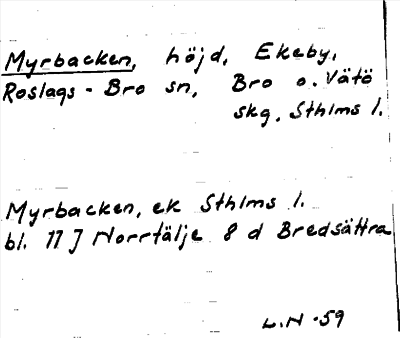 Myrbacken, höjd, Ekeby,
Roslags-Bro sn, Bro o. Vätö
skg, Sthlms l.
Myrbacken, ek Sthlms l.
bl. 11 J Norrtälje 8 d Bredsättra
L.N -59